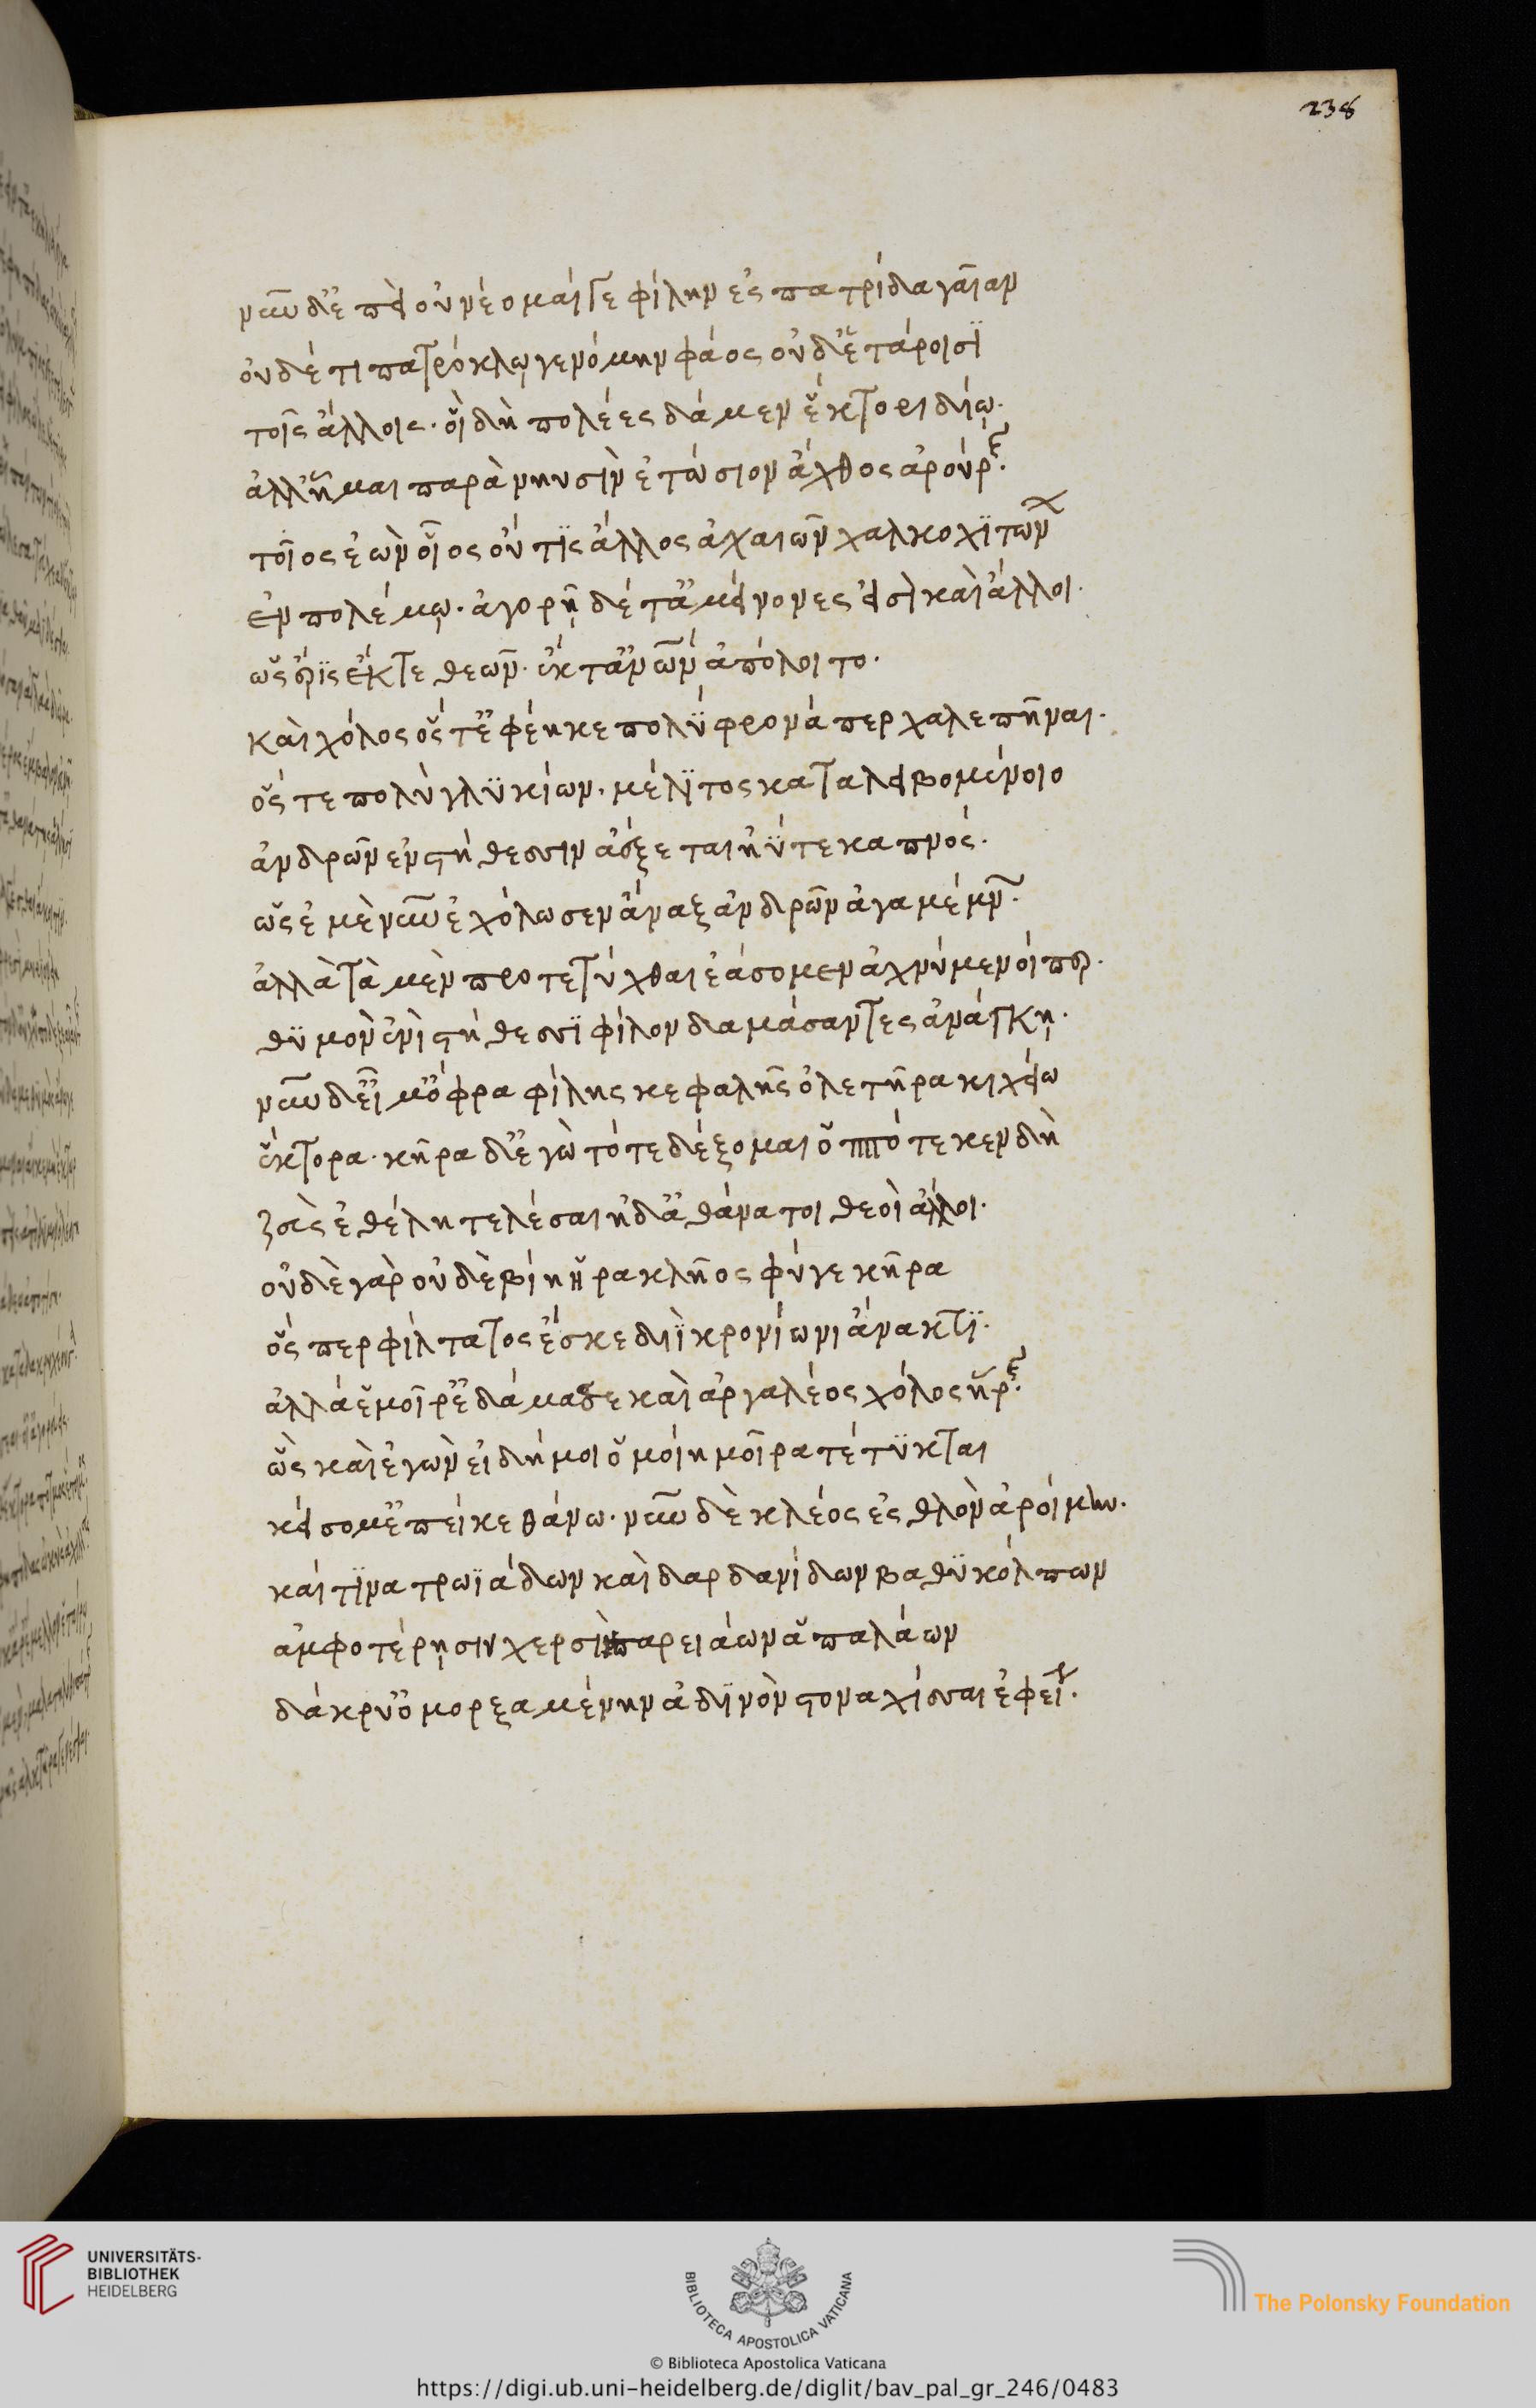 238
νῦν δ' ἐπεὶ οὐ νέομαί γε φίλην ἐς πατρίδα γαῖαν
οὐδέ τι πατρόκλῳ γενόμην φάος οὐδ' ἑτάροισϊ
τοῖς ἄλλοις· οἳ δὴ πολέες δάμεν ἕκτορι δίῳ·
ἀλλ' ἧμαι παρὰ νηυσὶν ἐτώσιον ἄχθος ἀρούρης·
τοῖος ἐὼν οἷος οὔ τϊς ἄλλος ἀχαιῶν χαλκοχϊτώνων
ἐν πολέμῳ· ἀγορῇ δέ τ' ἀμείνονες εἰσὶ καὶ ἄλλοι·
ὡς ἔρϊς ἔκ τε θεῶν· ἔκ τ' ἀνῶν ἀπόλοιτο·
καὶ χόλος ὅς τ' ἐφέηκε πολύφρονά περ χαλεπῆναι·
ὅς τε πολὺ γλϋκίων· μέλϊτος καταλειβομένοιο
ἀνδρῶν ἐν στήθεσσιν ἀέξεται ἠΰτε καπνός·
ὡς ἐμὲ νῦν ἐχόλωσεν ἄναξ ἀνδρῶν ἀγαμέμνων·
ἀλλὰ τὰ μὲν προτετύχθαι ἐάσομεν ἀχνύμενοί περ·
θϋμὸν ἐνὶ στήθεσσϊ φίλον δαμάσαντες ἀνάγκῃ·
νῦν δ' εἶμ' ὄφρα φίλης κεφαλῆς ὀλετῆρα κιχείω
ἕκτορα· κῆρα δ' ἐγὼ τότε δέξομαι ὁππότε κεν δὴ
ζεὺς ἐθέλη τελέσαι ἠδ' ἀθάνατοι θεοὶ ἄλλοι·
οὐδὲ γὰρ οὐδὲ βίη ἡρακλῆος φύγε κῆρα
ὅς περ φίλτατος ἔσκε διϊ κρονίωνι ἄνακτϊ·
ἀλλά ἑ μοῖρ' ἐδάμασε καὶ ἀργαλέος χόλος ἥρης·
ὣς καὶ ἐγὼν εἰ δή μοι ὁμοίη μοῖρα τέτϋκται
κείσομ' ἐπεί κε θάνω· νῦν δὲ κλέος ἐσθλὸν ἀροίμην·
καί τϊνα τρωϊάδων καὶ δαρδανίδων βαθϋκόλπων
ἀμφοτέρῃσιν χερσὶ παρειάων ἁπαλάων
δάκρυ' ὀμορξαμένην ἀδϊνὸν στοναχῖσαι ἐφείην·
UNIVERSITÄTS-
BIBLIOTHEK
HEIDELBERG
BIBLIOTECA APOSTOLICA VATICANA
The Polonsky Foundation
© Biblioteca Apostolica Vaticana
https://digi.ub.uni-heidelberg.de/diglit/bav_pal_gr_246/0483